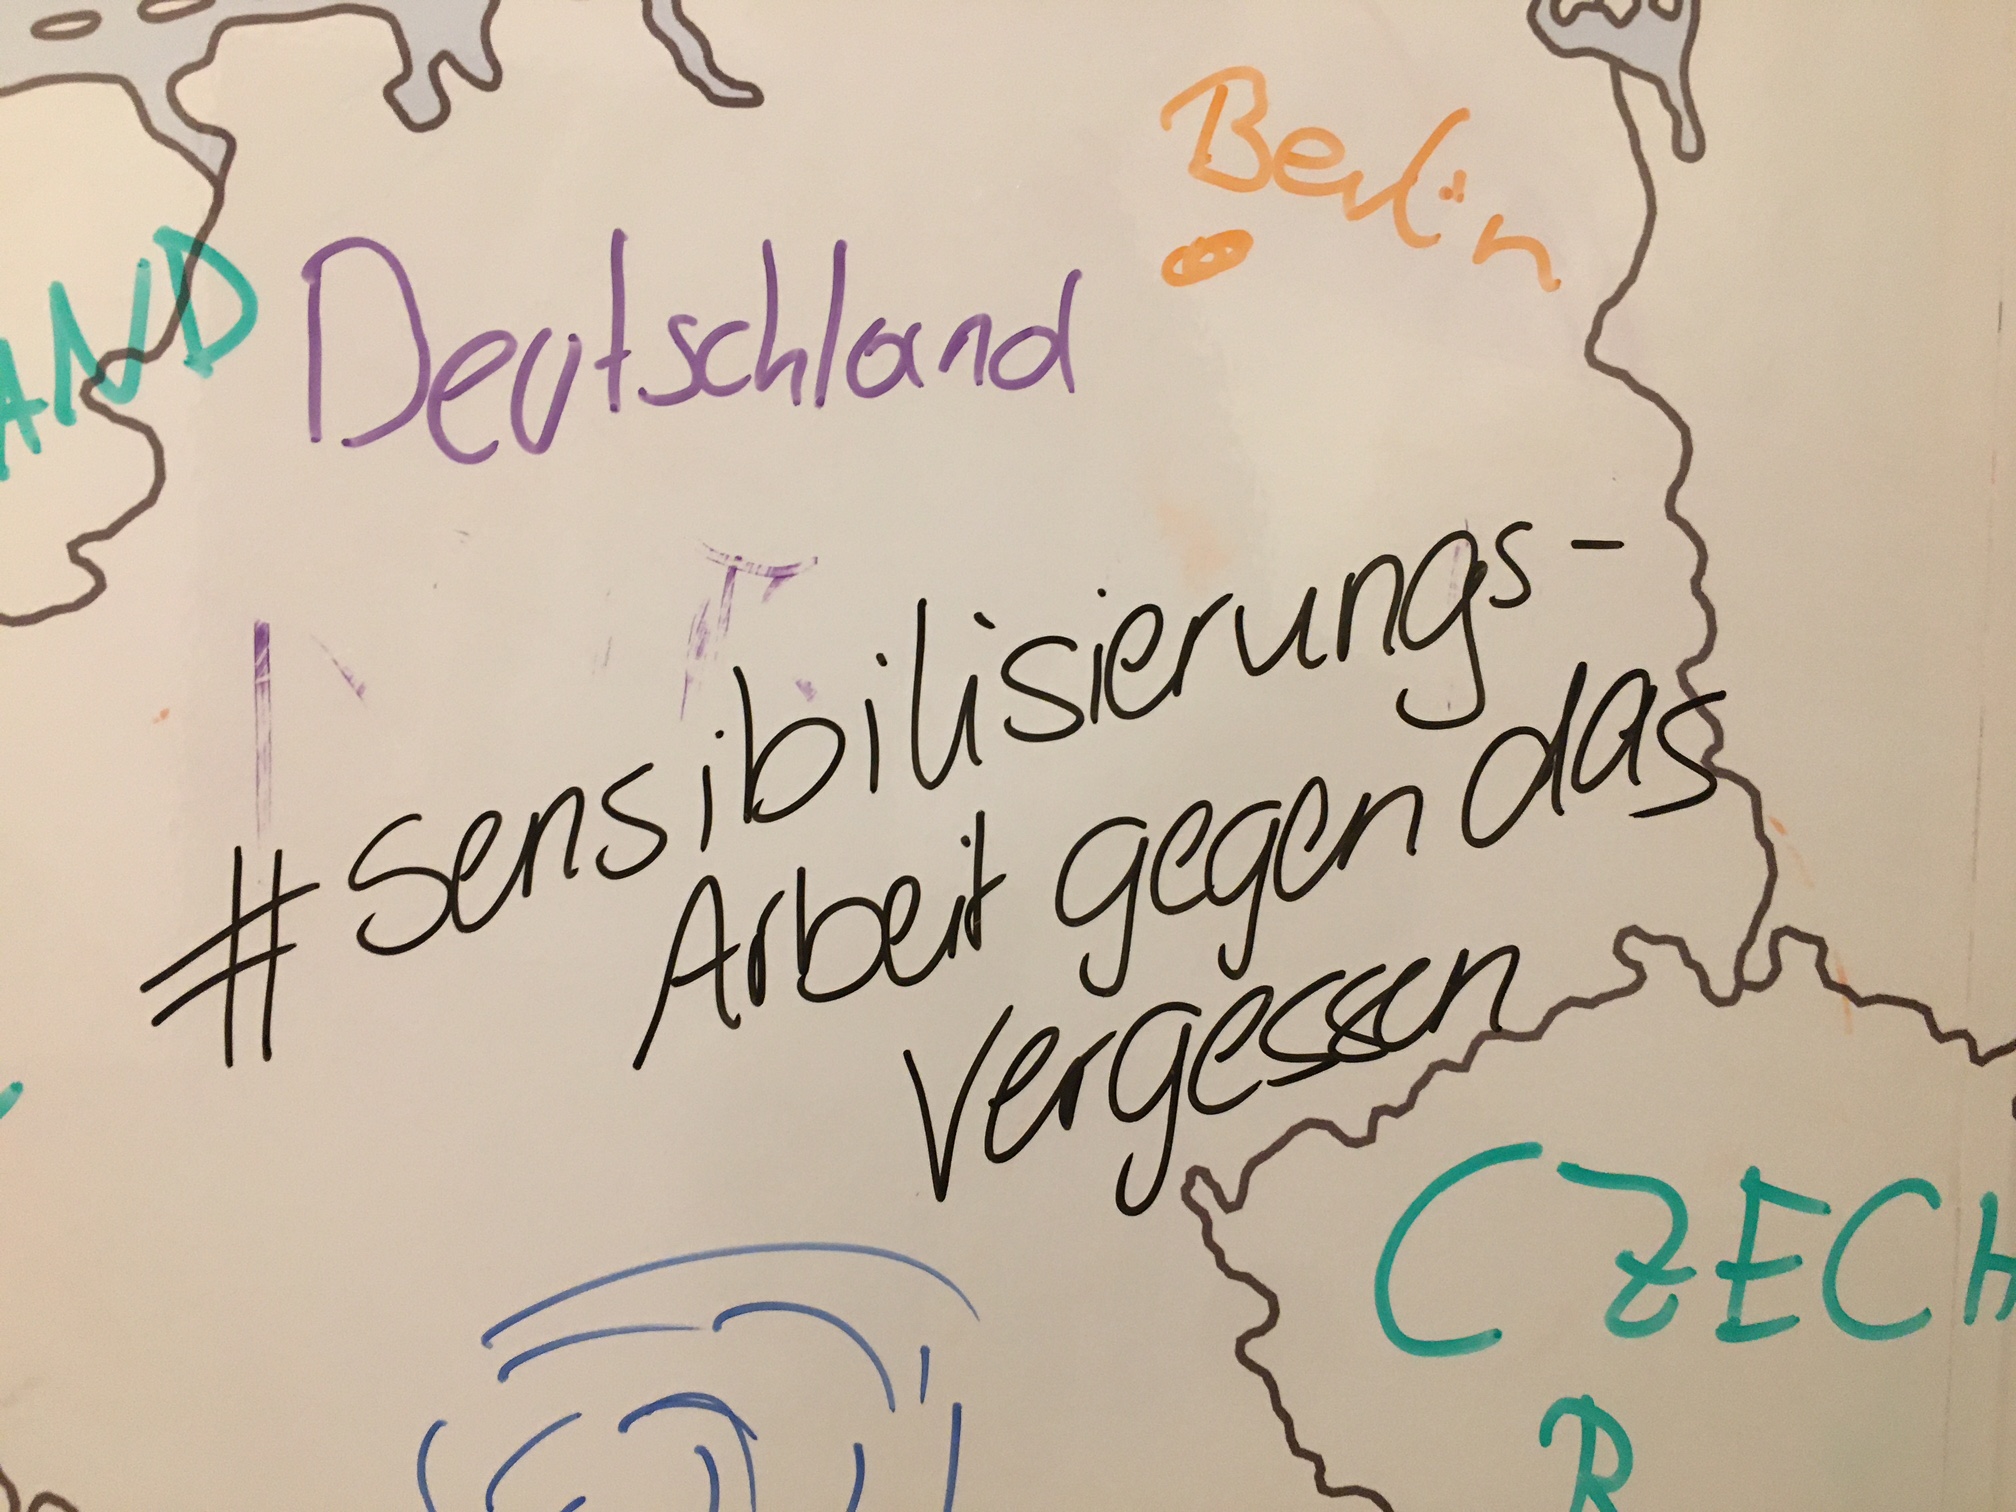 Berlin
Deutschland
AND
#sensibilisierungs-
Arbeit gegen das
Vergessen
CZECH
R